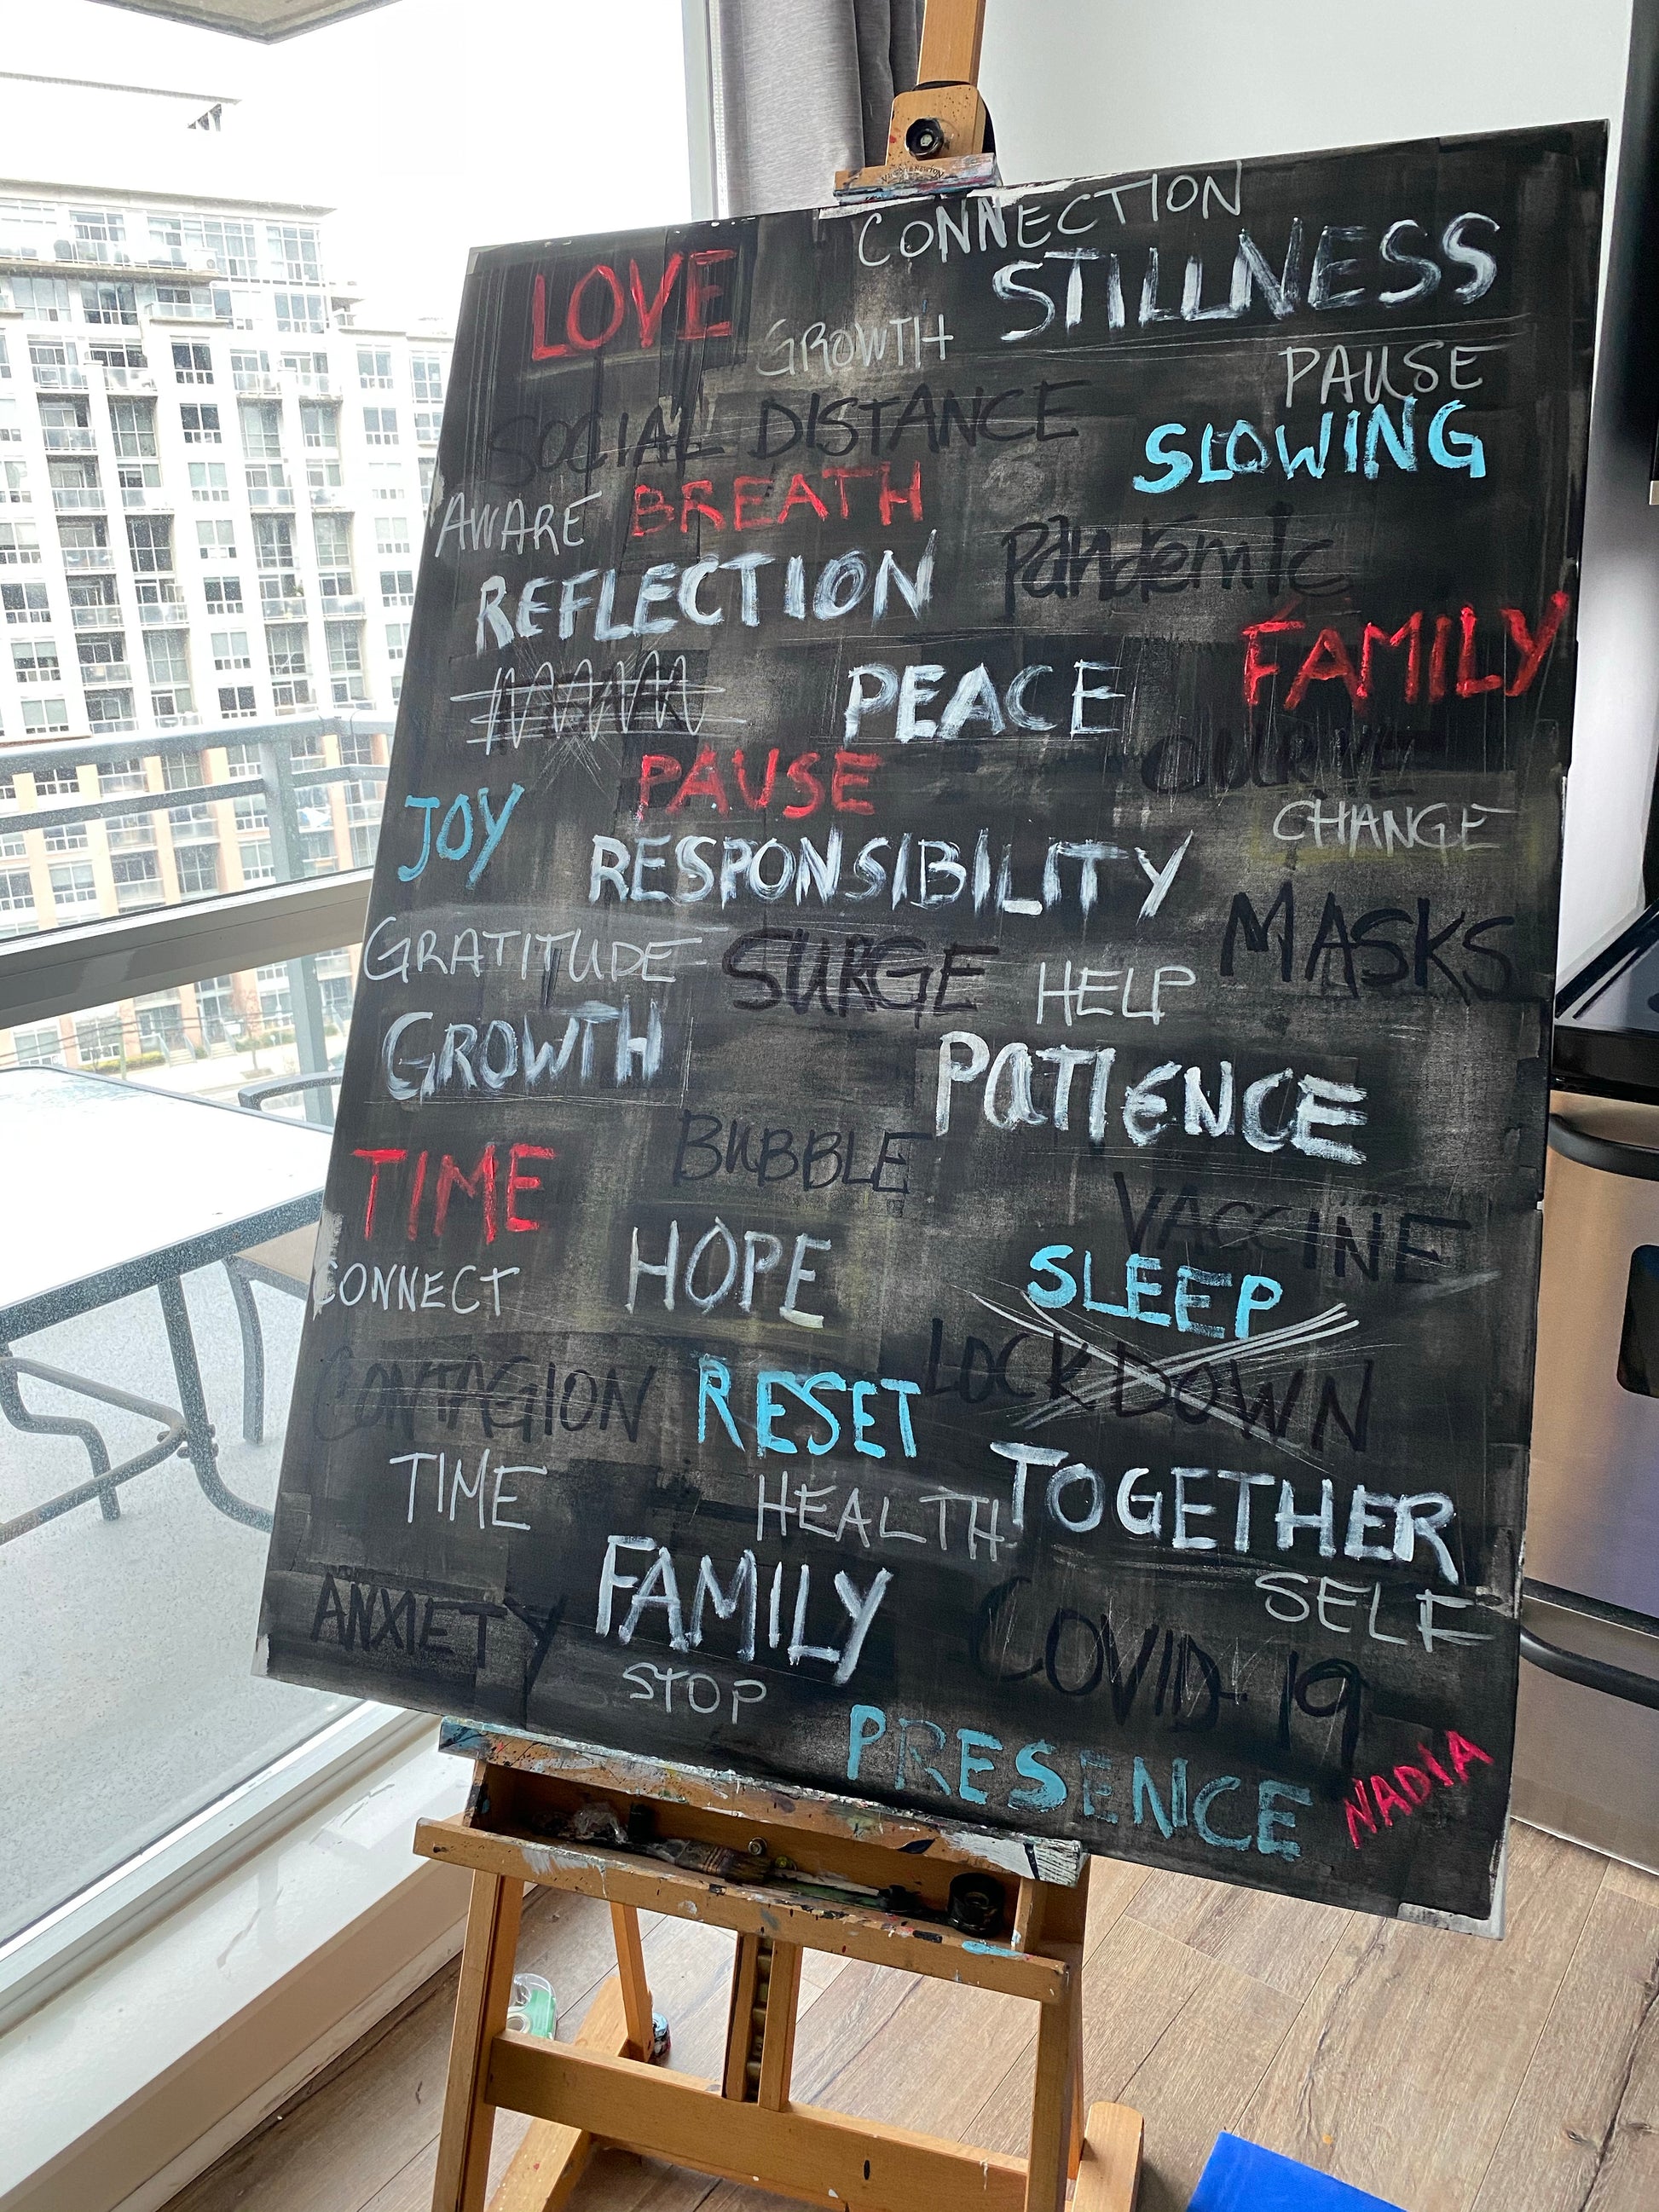 CONNECTION
LOVE
STILLNESS
GROWTH
PAUSE
SOCIAL DISTANCE
SLOWING
AWARE BREATH
REFLECTION
pandemic
FAMILY
PEACE
PAUSE
JOY
CHANGE
RESPONSIBILITY
GRATITUDE SURGE HELP MASKS
GROWTH
PATIENCE
BUBBLE
TIME
VACCINE
HOPE
SLEEP
CONNECT
CONTAGION RESET LOCKDOWN
TIME
HEALTH TOGETHER
FAMILY
SELF
ANXIETY
COVID-19
STOP
PRESENCE
NADIA